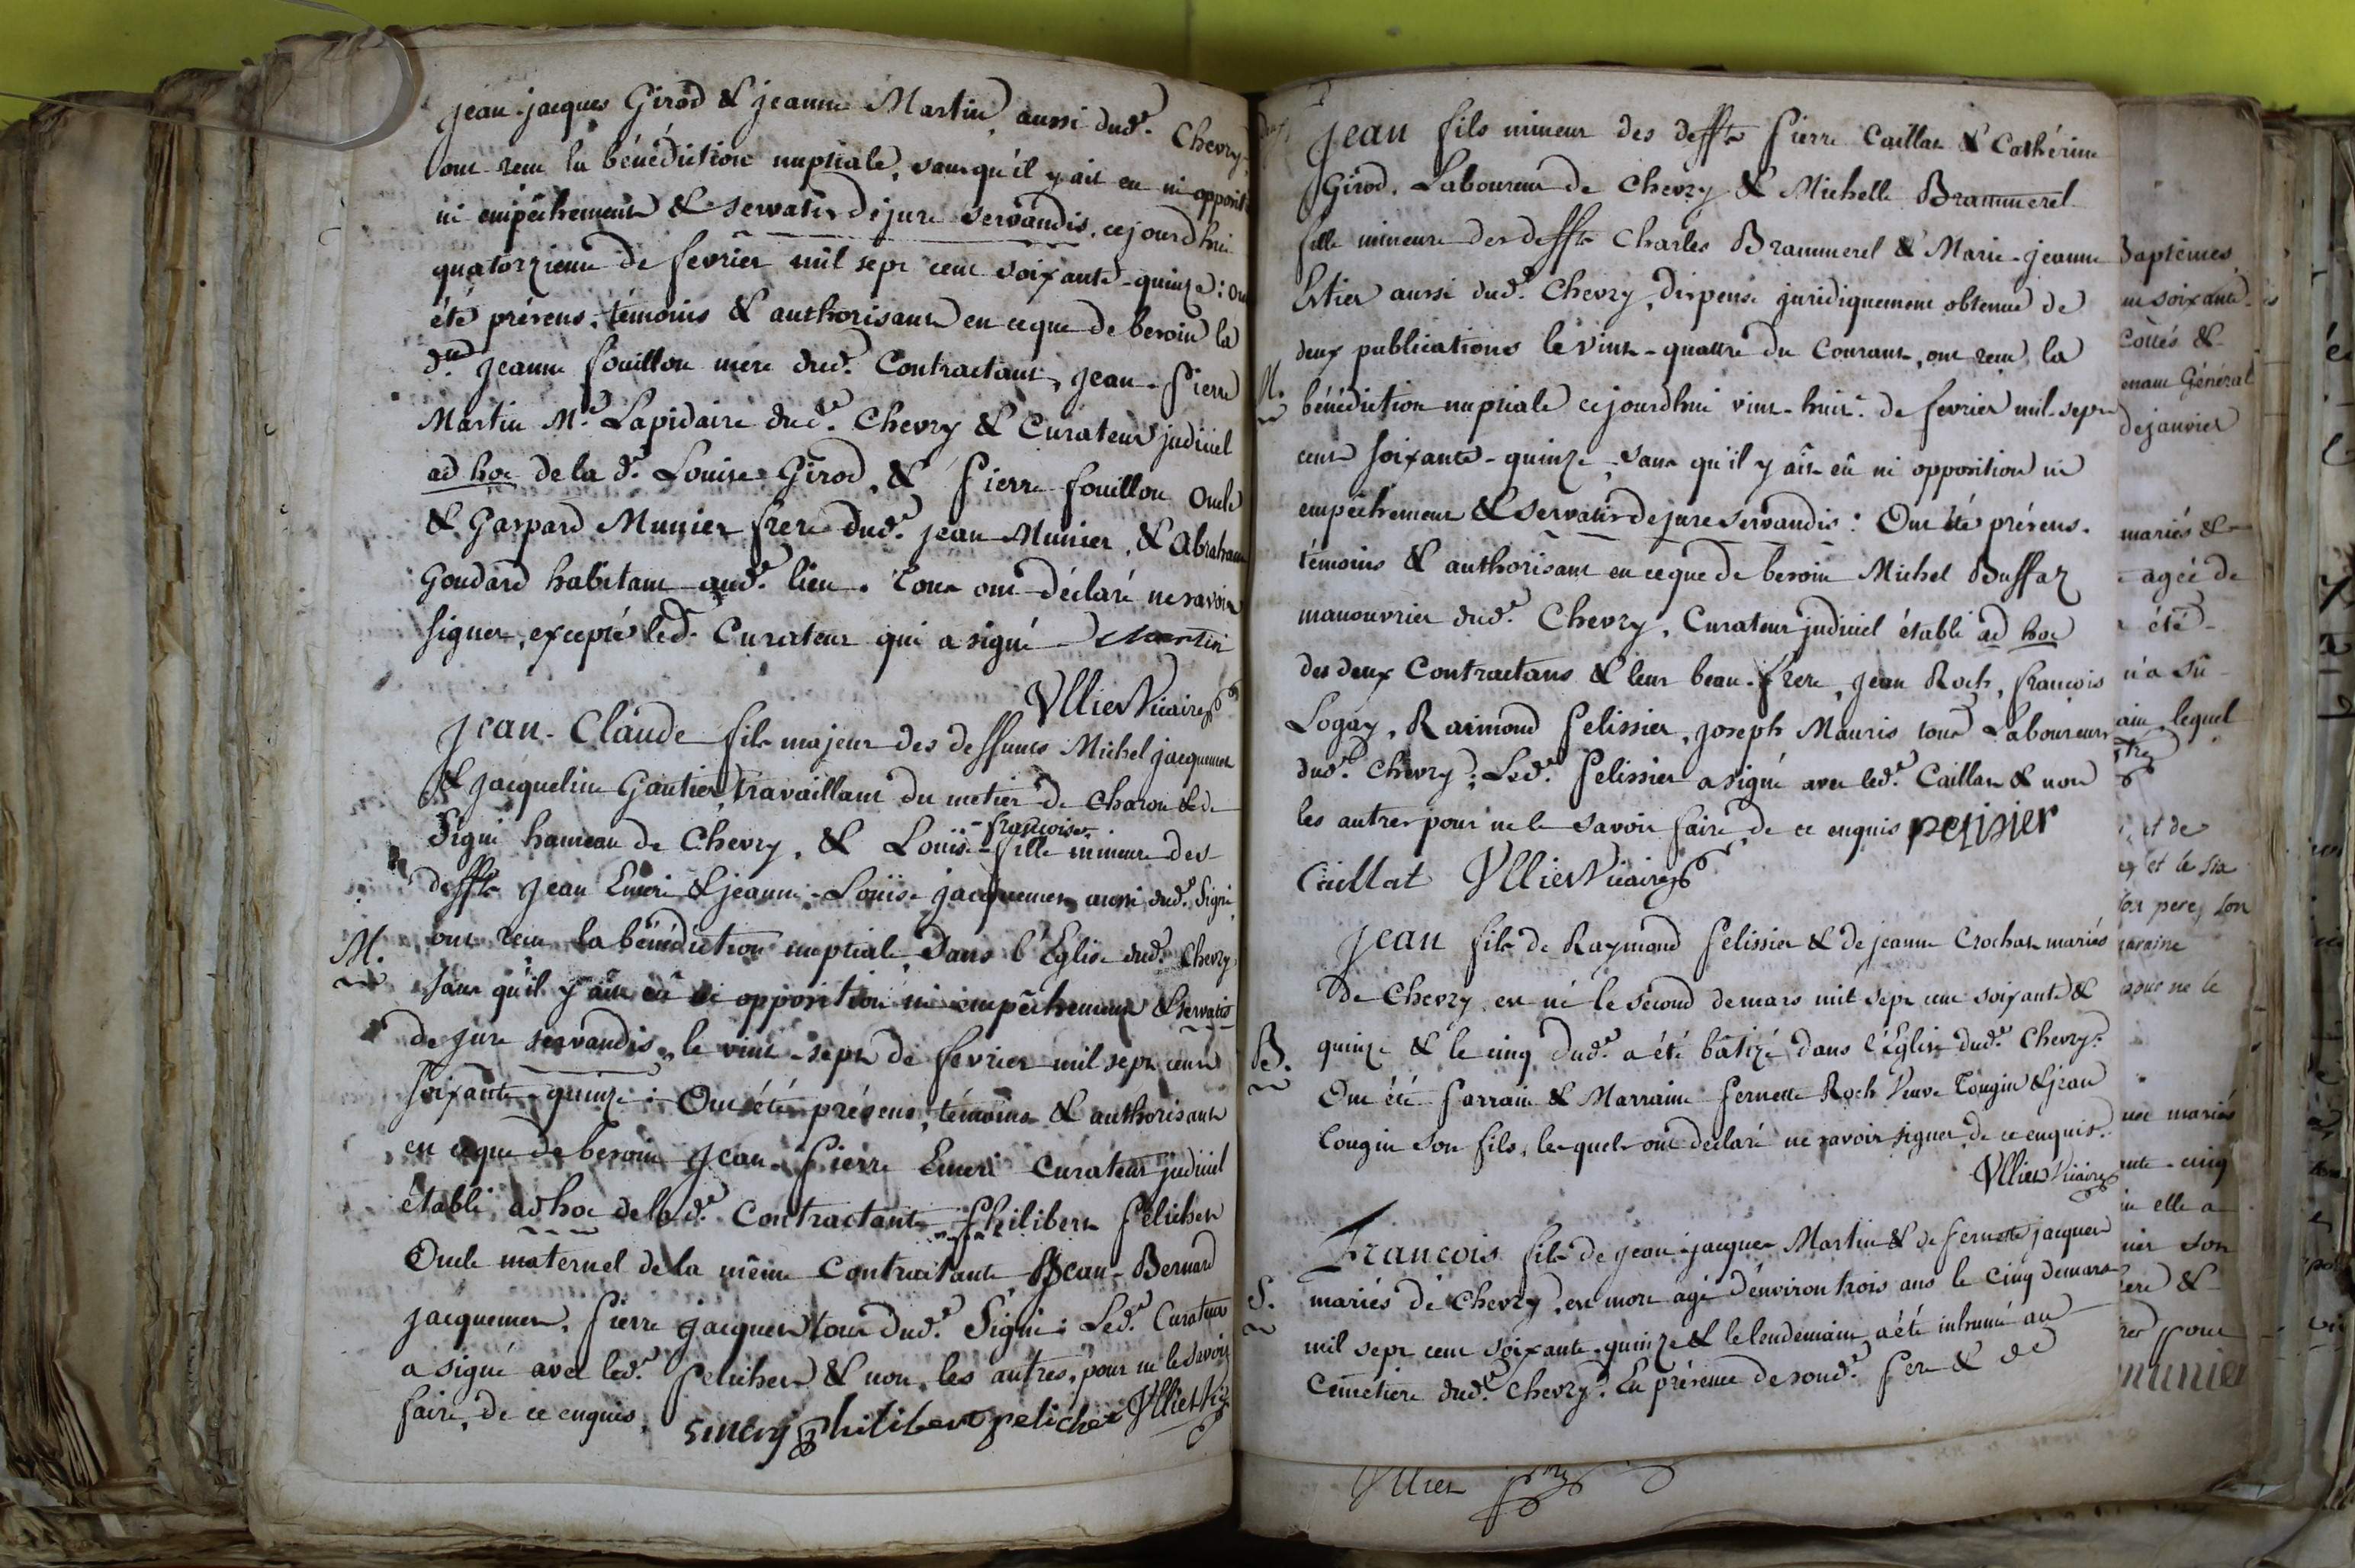 Jean-jacques Girod & jeanne Martin, aussi dud.t Chevry
ont recu la bénédiction nuptiale, sans qu'il y ait eu ni opposit
ni empêchement & servatis de jure servandis, cejourdhui
quatorzieme de fevrier mil sept cent soixante-quinze: On
été présens, témoins & authorisant en ce que de besoin la
d.e Jeanne fouillou mere dud.t Contractant, Jean-Pierre
Martin M.e Lapidaire dud.t Chevry & Curateur judiciel
ad hoc de la d.e Louise Girod, & Pierre fouillou Oncle
& Gaspard Munier frere dud.t Jean Munier, & Abraham
Goudard habitant aud.t lieu. Tous ont déclaré ne savoir
signer, excepté led.t Curateur qui a signé Martin
Ullier Vicaire
Jean-Claude fils majeur des deffunts Michel jacquemet
& Jacqueline Gautier, travaillant du metier de charon & de
Signi hameau de Chevry, & Louise-fille mineure des
-françoise-
deffts Jean Emeri & jeanne-Louise jacquemet aussi dud.t Signi
M. ont recu la bénédiction nuptiale dans l'Eglise dud.t Chevry
sans qu'il y ait eû ni opposition ni empêchement & servatis
de jure servandis, le vint-sept de fevrier mil sept cent
soixante-quinze: Ont été présens, témoins & authorisant
en ce que de besoin Jean-Pierre Emeri Curateur judiciel
établi ad hoc de la d.e Contractante, Philibert Pelichet
Oncle maternel de la même Contractante Jean-Bernard
jacquemet, Pierre jacquet tous dud.t Signi: Led.t Curateur
a signé avec led.t Pelichet & non les autres, pour ne le savoir
faire, de ce enquis. Emery Philibert pelichet Ullier Vic.
Jean fils mineur des deffts Pierre Caillat & Cathérine
Girod, Laboureur de Chevry & Michelle Brammerel
fille mineure des deffts Charles Brammerel & Marie-jeanne
Estier aussi dud.t Chevry, dispense juridiquement obtenue de
deux publications le vint-quattre du Courant, ont recu la
M. bénédiction nuptiale cejourdhui vint-huit.e de fevrier mil-sept
cent soixante-quinze, sans qu'il y ait eû ni opposition ni
empêchement & servatis de jure servandis: Ont été présens,
témoins & authorisant en ce que de besoin Michel Buffaz
manouvrier dud.t Chevry, Curateur judiciel établi ad hoc
des deux Contractans & leur beau-frere, Jean Roch, francois
Logay, Raimond Pelissier, Joseph Mauris tous Laboureurs
dud.t Chevry: Led.t Pelissier a signé avec led.t Caillat & non
les autres pour ne le savoir faire de ce enquis pelissier
Caillat Ullier Vicaire
Jean fils de Raymond Pelissier & de jeanne Crochat mariés
de Chevry, est né le second de mars mil sept cent soixante &
B. quinze & le cinq dud.t a été batizé dans l'Eglise dud.t Chevry:
Ont été Parrain & Marraine Pernette Roch Veuve Tougin & Jean
Tougin son fils, lesquels ont déclaré ne savoir signer de ce enquis.
Ullier Vicaire
Francois fils de Jean-jacques Martin & de Pernette jacquet
S. mariés de Chevry, est mort agé d'environ trois ans le cinq de mars
mil sept cent soixante-quinze & le lendemain a été inhumé au
Cimetiere dud.t Chevry. En présence de sond.t Pere & de
Ullier
Baptêmes
soixante
cottés &
Général
de janvier
mariés &
agée de
été
n'a su
lequel
et de
et le six
pere, son
ne le
mariés
cinq
elle a
son
&
pour
munier